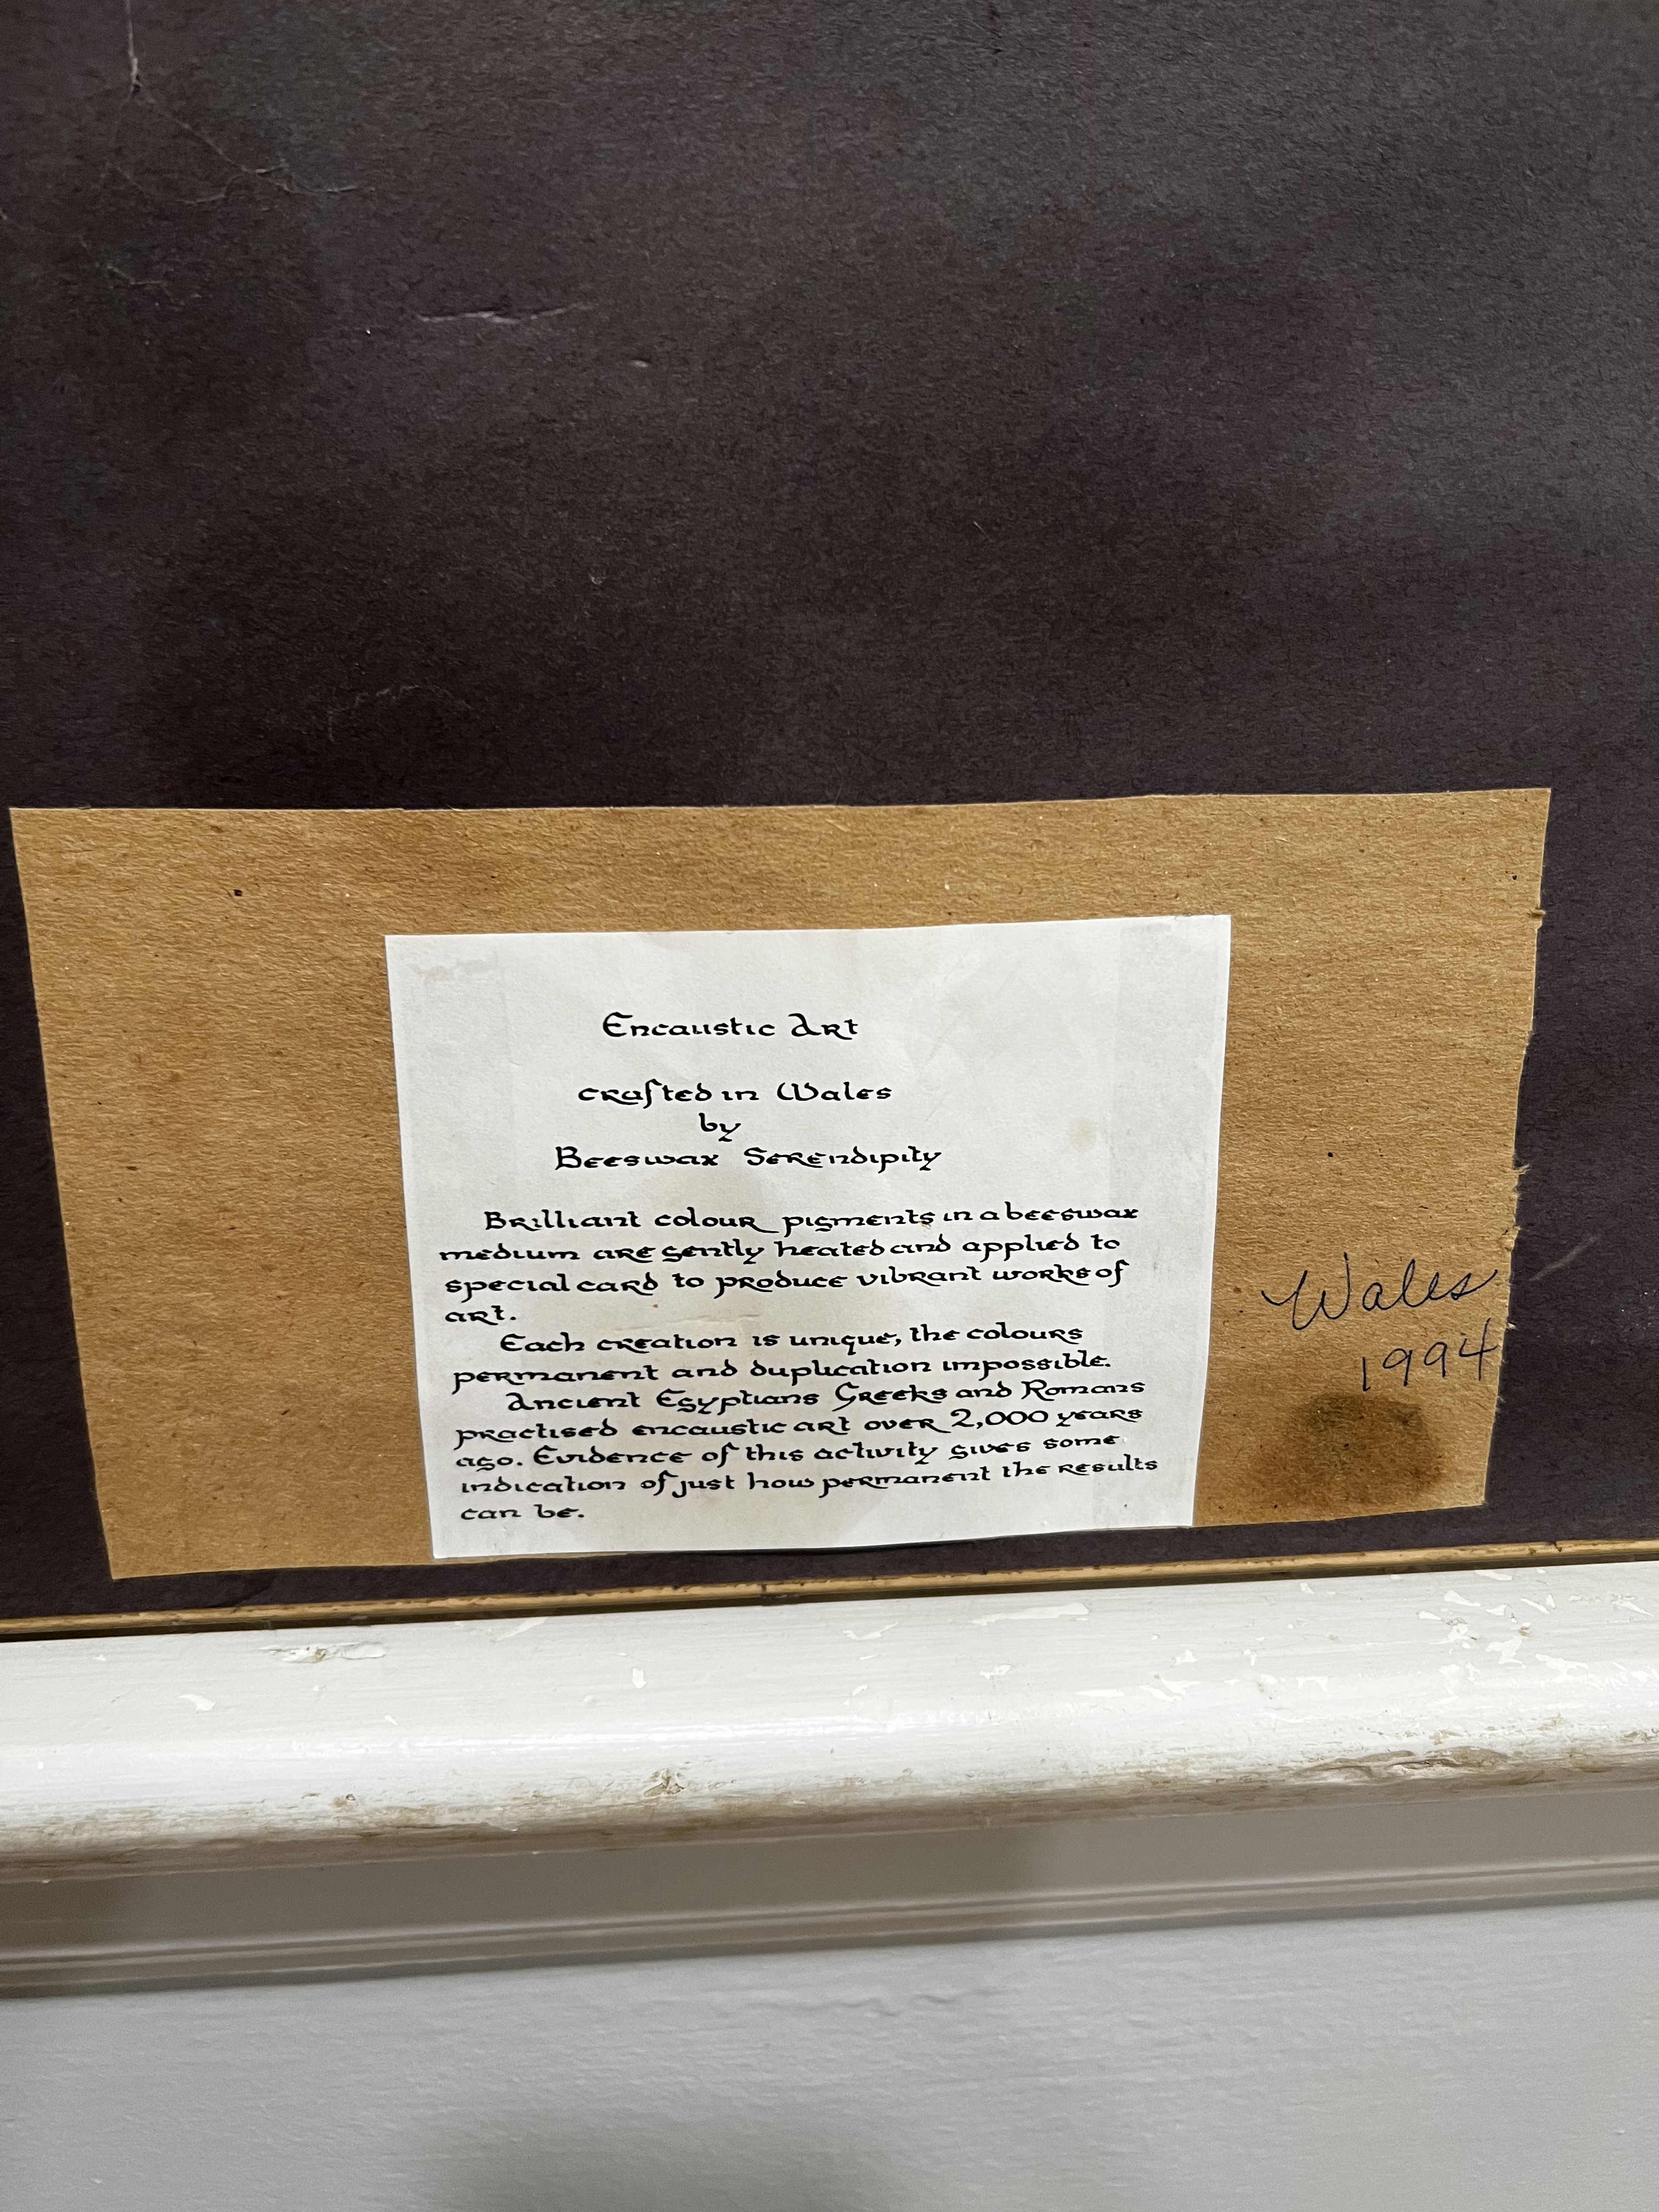 Encaustic Art
crafted in Wales
by
Beeswax Serendipity
Brilliant colour pigments in a beeswax
medium are gently heated and applied to
special card to produce vibrant works of
art.
Each creation is unique, the colours
permanent and duplication impossible.
Ancient Egyptians Greeks and Romans
practised encaustic art over 2,000 years
ago. Evidence of this activity gives some
indication of just how permanent the results
can be.
Wales
1994